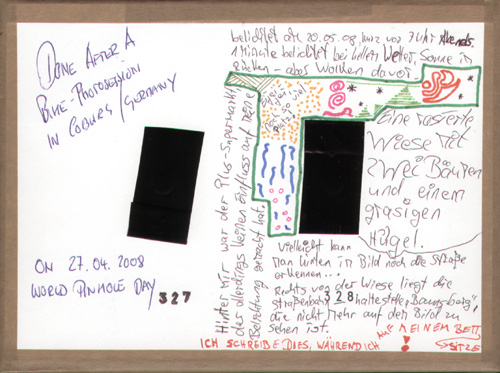 DONE AFTER A
BIKE-PHOTOSESSION
IN COBURG/GERMANY
ON 27.04.2008
WORLD PINHOLE DAY
327
belichtet am 20.05.08 kurz vor 7 Uhr Abends.
1 Minute belichtet bei hellem Wetter, Sonne im
Rücken – aber Wolken davor.
Hinter mir war der Plus-Supermarkt,
der allerdings keinen Einfluss auf meine
Belichtung gemacht hat.
Eine rasierte
Wiese mit
zwei Bäumen
und einem
grasigen
Hügel.
Vielleicht kann
man hinten im Bild noch die Straße
erkennen...
Rechts von der Wiese liegt die
Straßenbahnhaltestelle
328
die nicht mehr auf dem Bild zu
sehen ist.
ICH SCHREIBE DIES, WÄHREND ICH
AUF MEINEM BETT
SITZE!